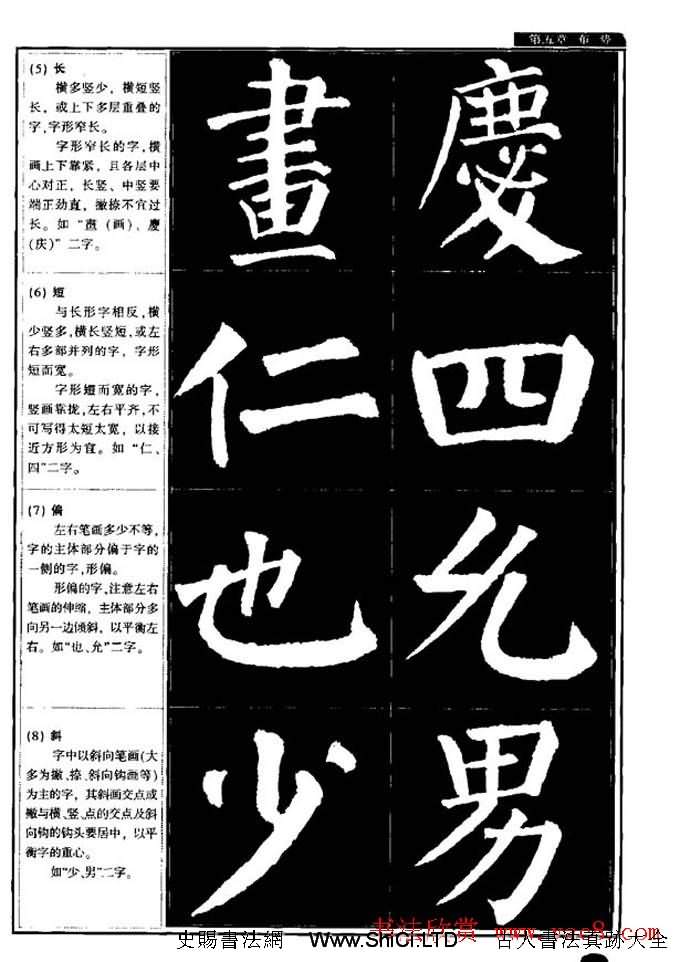 第五章 布 势
(5) 长
横多竖少，横短竖
长，或上下多层重叠的
字，字形窄长。
字形窄长的字，横
画上下靠紧，且各层中
心对正，长竖、中竖要
端正劲直，撇捺不宜过
长。如“畫(画)、慶
(庆)”二字。
畫 慶
(6) 短
与长形字相反，横
少竖多，横长竖短，或左
右多部并列的字，字形
短而宽。
字形短而宽的字，
竖画靠拢，左右平齐，不
可写得太短太宽，以接
近方形为宜。如“仁、
四”二字。
仁 四
(7) 偏
左右笔画多少不等，
字的主体部分偏于字的
一侧的字，形偏。
形偏的字，注意左右
笔画的伸缩，主体部分多
向另一边倾斜，以平衡左
右。如“也、允”二字。
也 允
(8) 斜
字中以斜向笔画(大
多为撇、捺、斜向钩画等)
为主的字，其斜画交点或
撇与横、竖、点的交点及斜
向钩的钩头要居中，以平
衡字的重心。
如“少、男”二字。
少 男
书法欣赏
史賜書法網 www.ShiCi.LTD 古人書法真跡大全